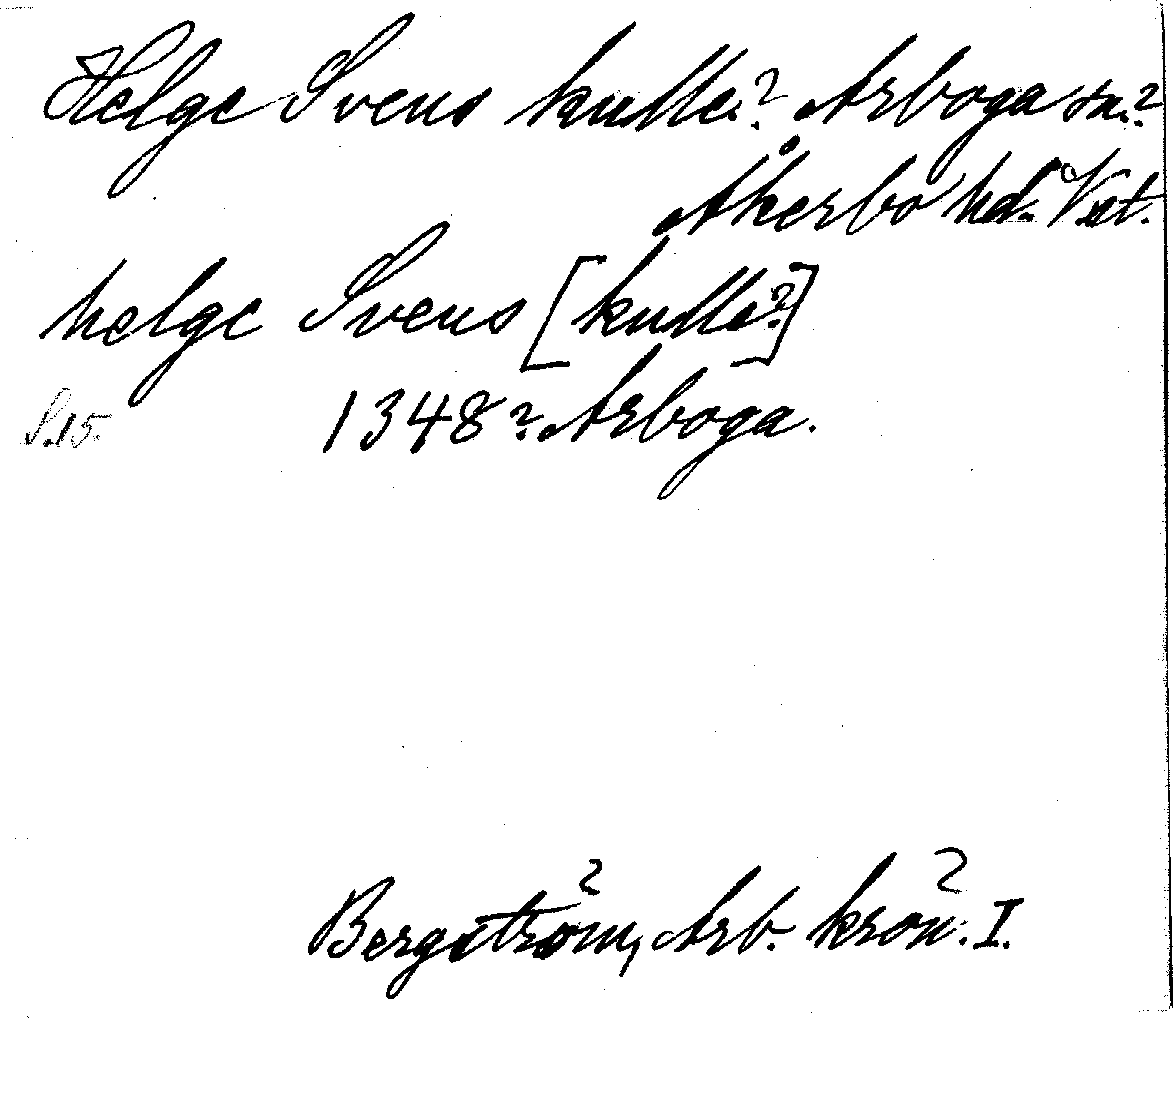 Helge Svens kulle? Arboga sn.?
Åkerbo hd. Vst.
helge Svens [kulle?]
S.15. 1348? Arboga.
Bergström, Arb. krön. I.